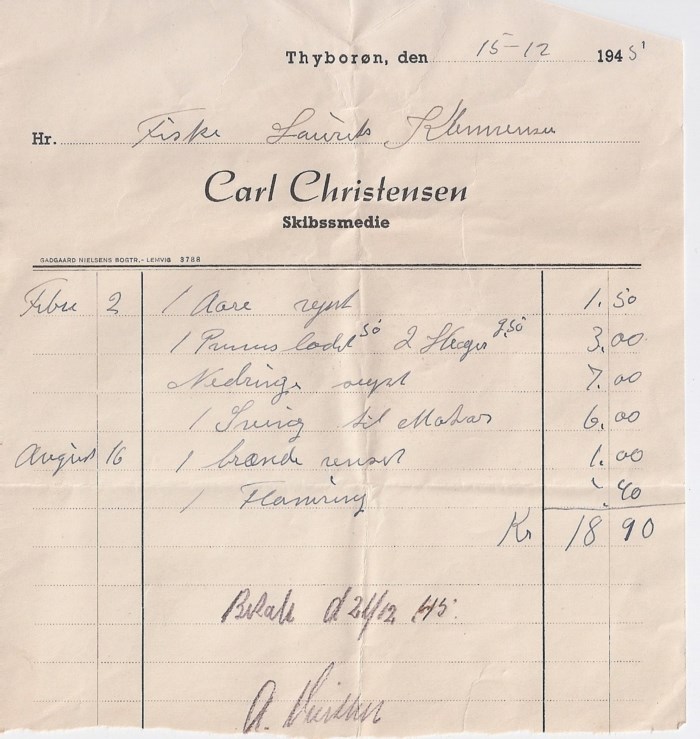 Thyborøn, den 15-12 1945
Hr. Fisker Laurits Klemmensen
Carl Christensen
Skibssmedie
GADGAARD NIELSENS BOGTR.- LEMVIG 3788
Febr 2 1 Aare rept 1.50
1 Primus lodet 50 2 Hager 2,50 3.00
rept 7.00
1 Sving til Motor 6.00
August 16 1 brænde renset 1.00
1 .40
Kr 18 90
Betalt d 21/12 45.
A.